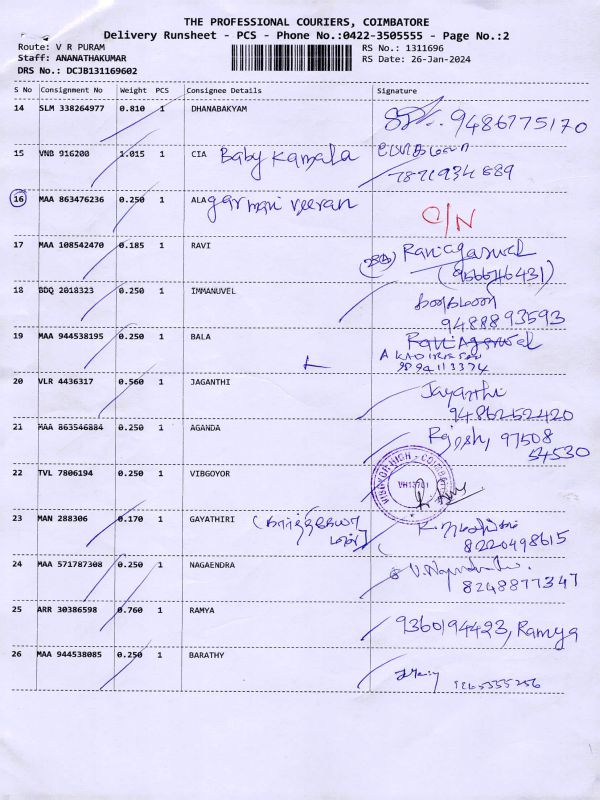 THE PROFESSIONAL COURIERS, COIMBATORE
Delivery Runsheet - PCS - Phone No.:0422-3505555 - Page No.:2
Route: V R PURAM
RS No.: 1311696
Staff: ANANATHAKUMAR
RS Date: 26-Jan-2024
DRS No.: DCJB131169602
S No Consignment No Weight PCS Consignee Details Signature
14 SLM 338264977 0.810 1 DHANABAKYAM
9486775170
15 VNB 916200 1.015 1 CIA Baby Kamala
16 MAA 863476236 0.250 1 ALA
C/N
17 MAA 108542470 0.185 1 RAVI Ravi agarwal
(9566646431)
18 BDQ 2018323 0.250 1 IMMANUVEL
9488893593
19 MAA 944538195 0.250 1 BALA Ravi Agarwal
20 VLR 4436317 0.560 1 JAGANTHI Jayanthi
9486252420
21 MAA 863546884 0.250 1 AGANDA Rajesh, 97508
54530
22 TVL 7806194 0.250 1 VIBGOYOR
23 MAN 288306 0.170 1 GAYATHIRI
8220498615
24 MAA 571787308 0.250 1 NAGAENDRA
8248877347
25 ARR 30386598 0.760 1 RAMYA 9360194423, Ramya
26 MAA 944538085 0.250 1 BARATHY